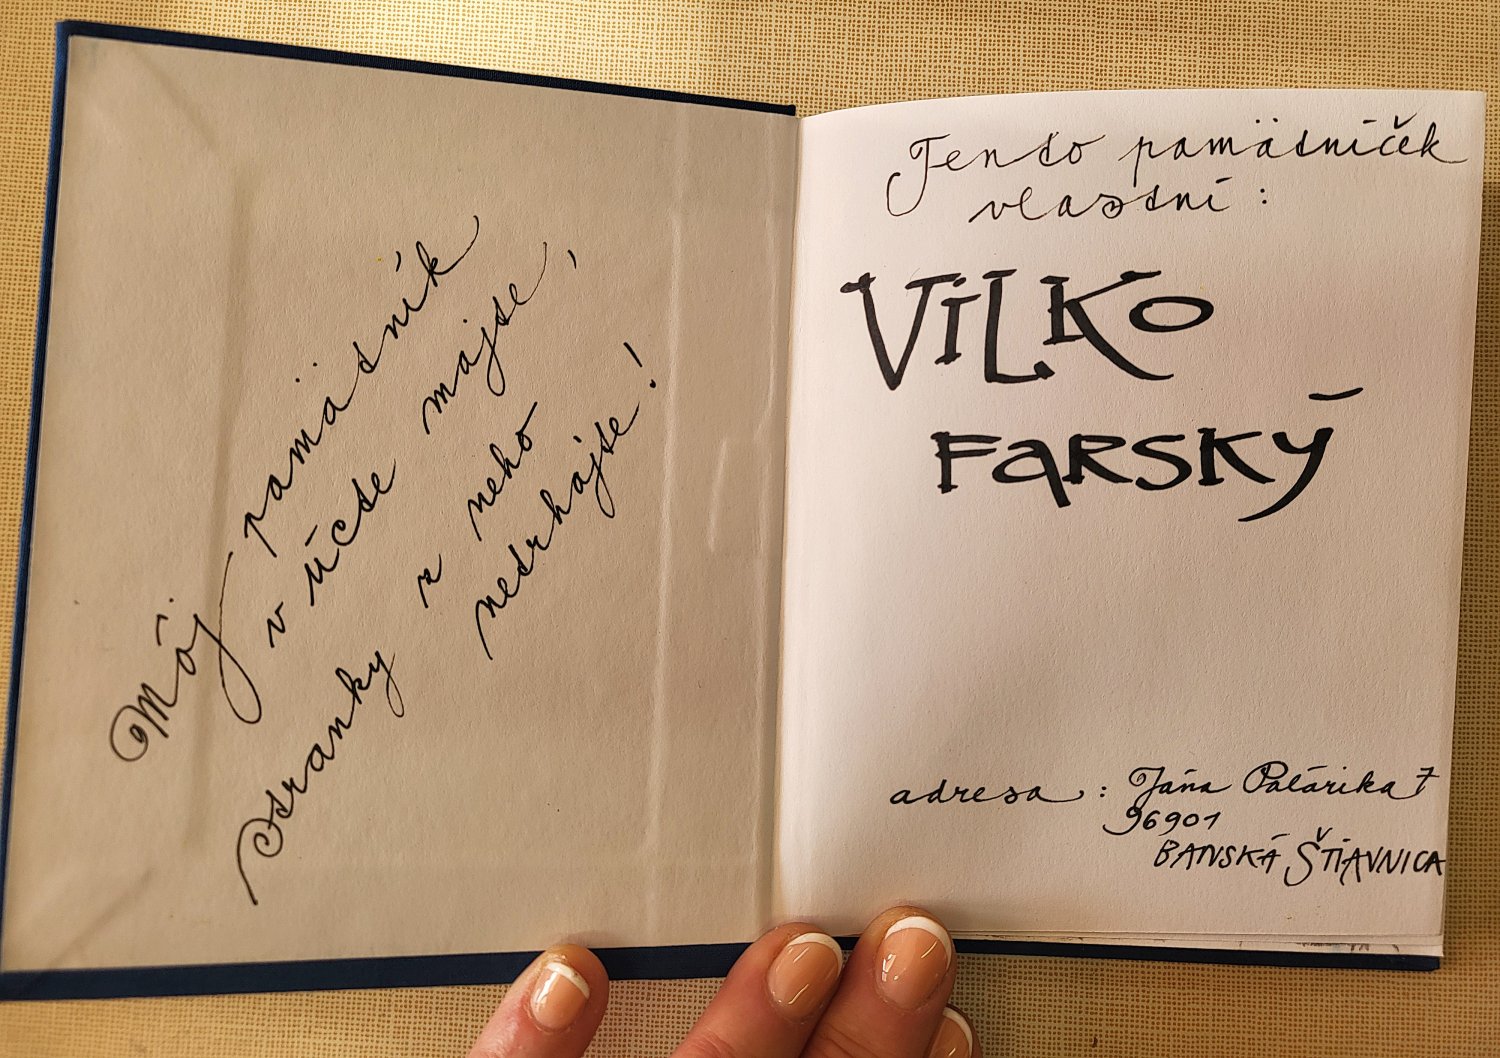 Môj pamätník
v úcte majte,
stranky z neho
netrhajte!
Tento pamätníček
vlastní :
ViLKO
FARSKÝ
adresa : Jána Palárika 7
96901
BANSKÁ ŠTIAVNICA